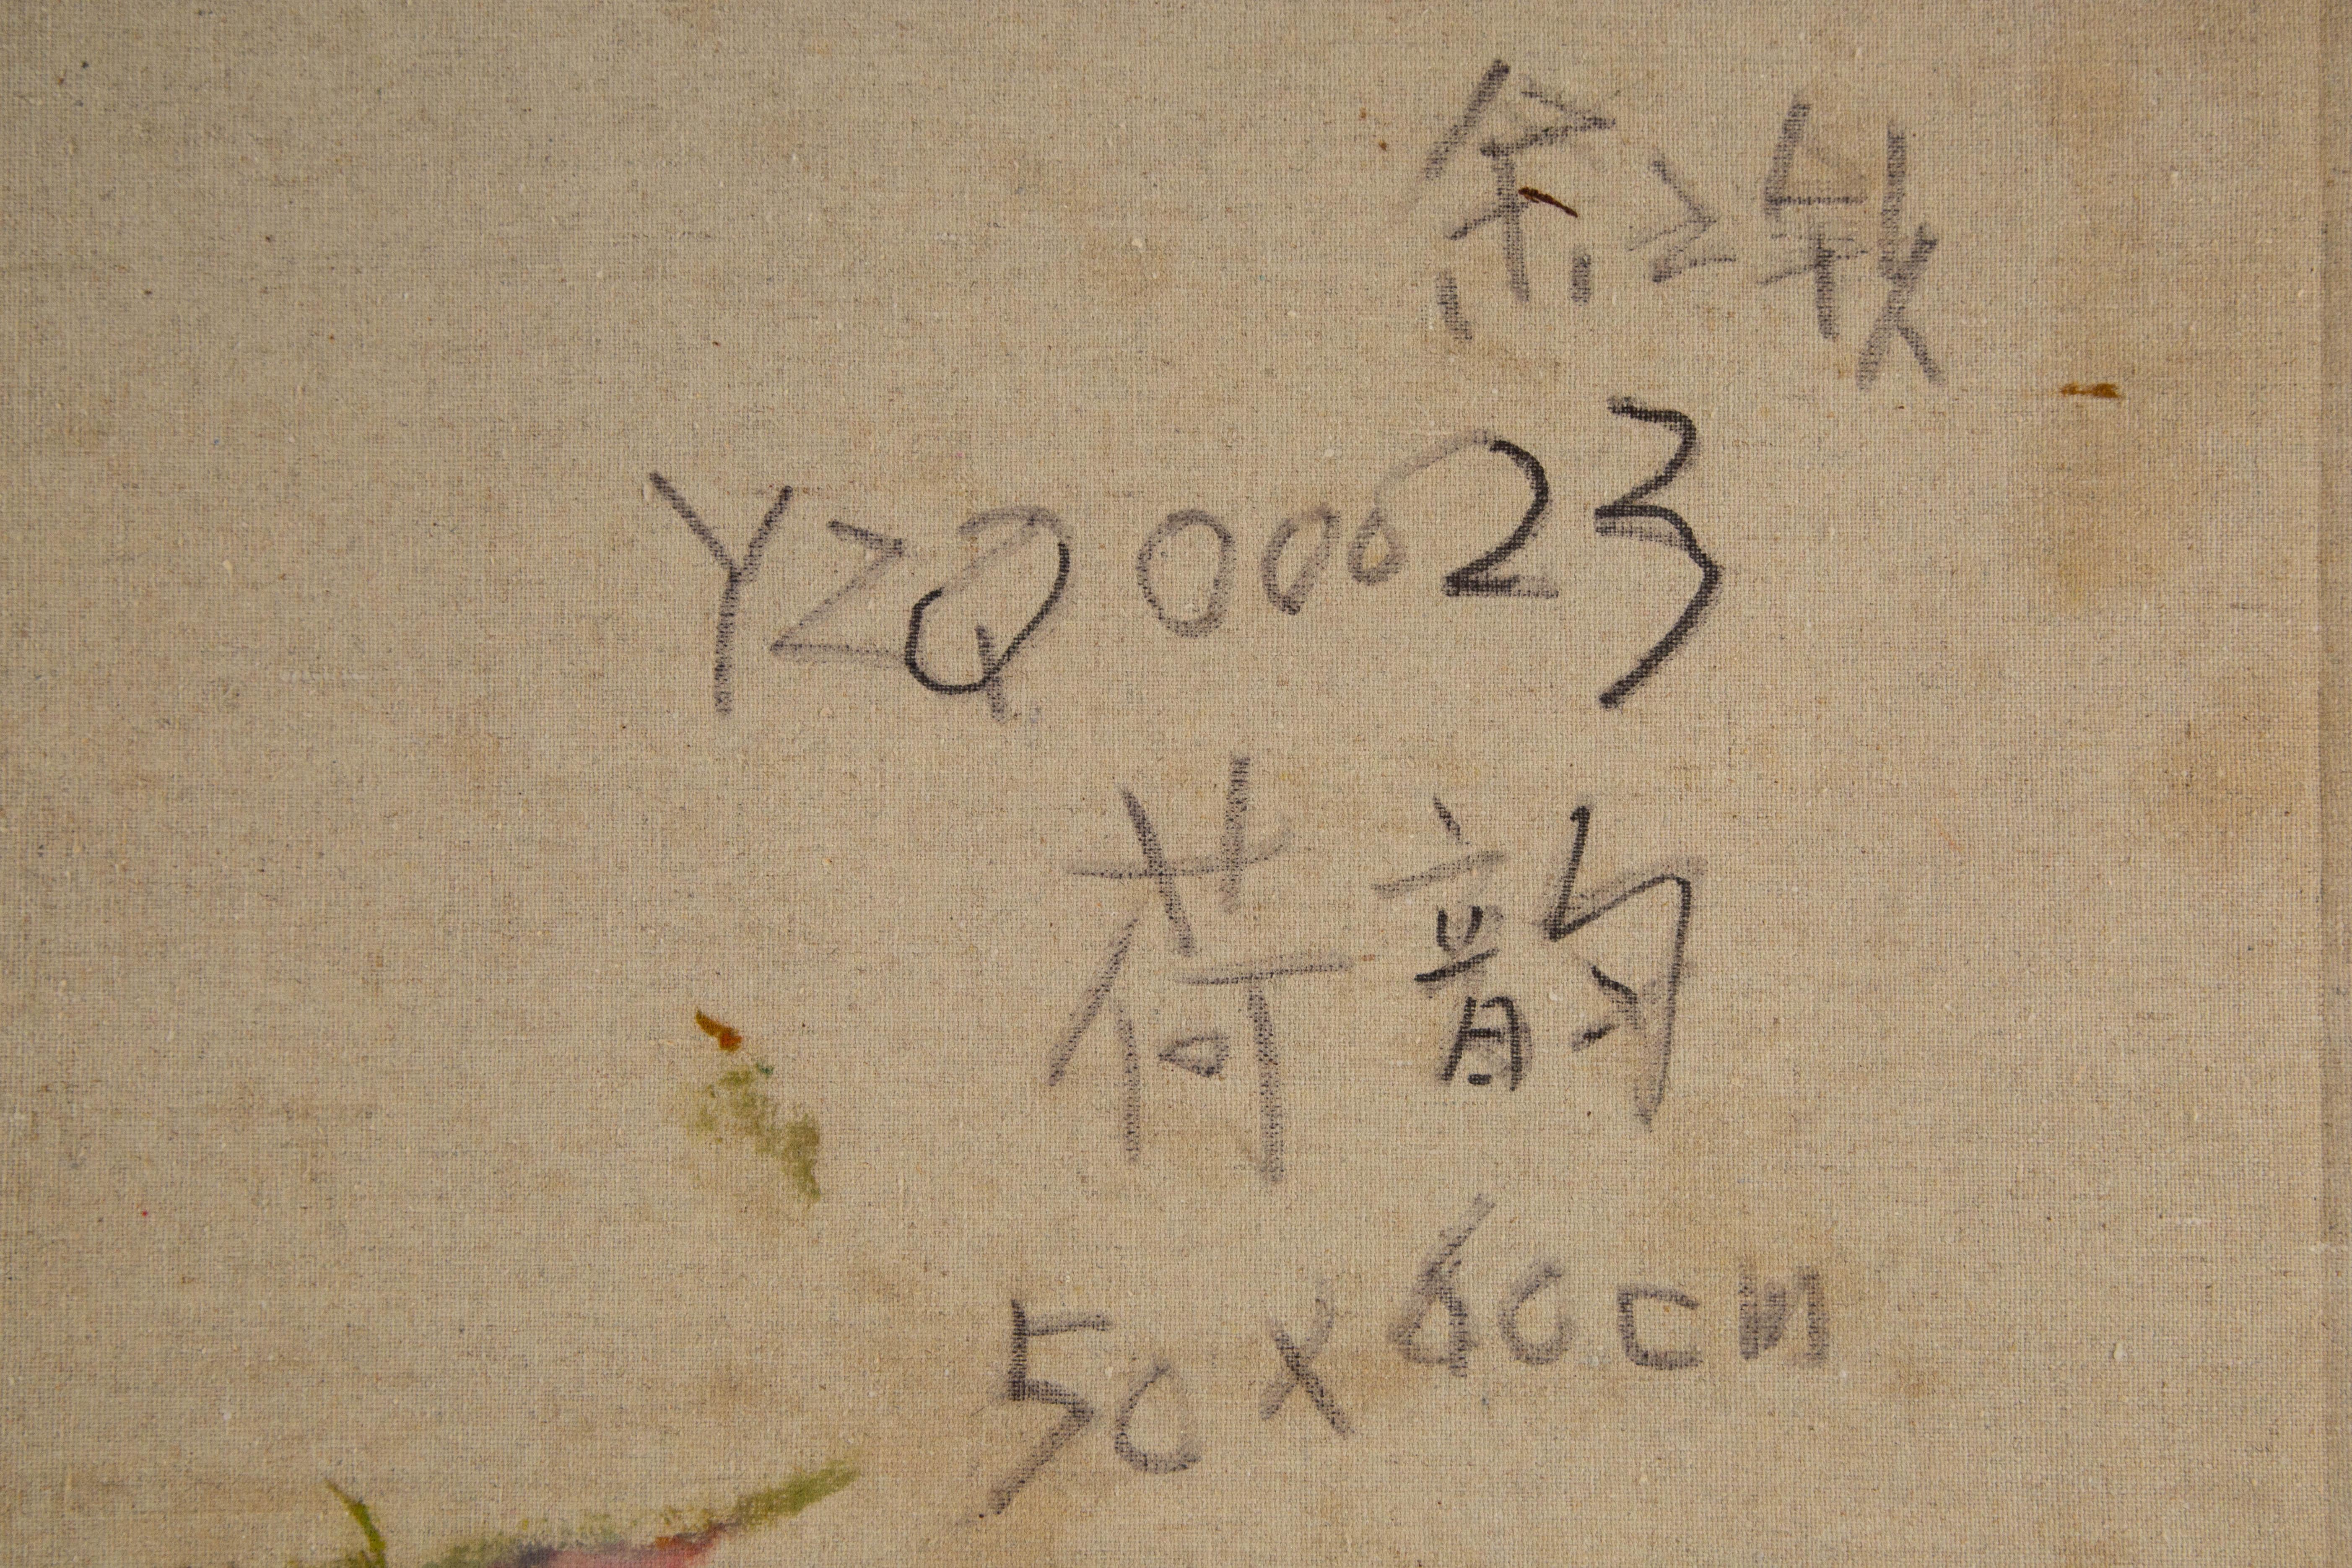 余
YZQ00023
荷韵
50x60cm